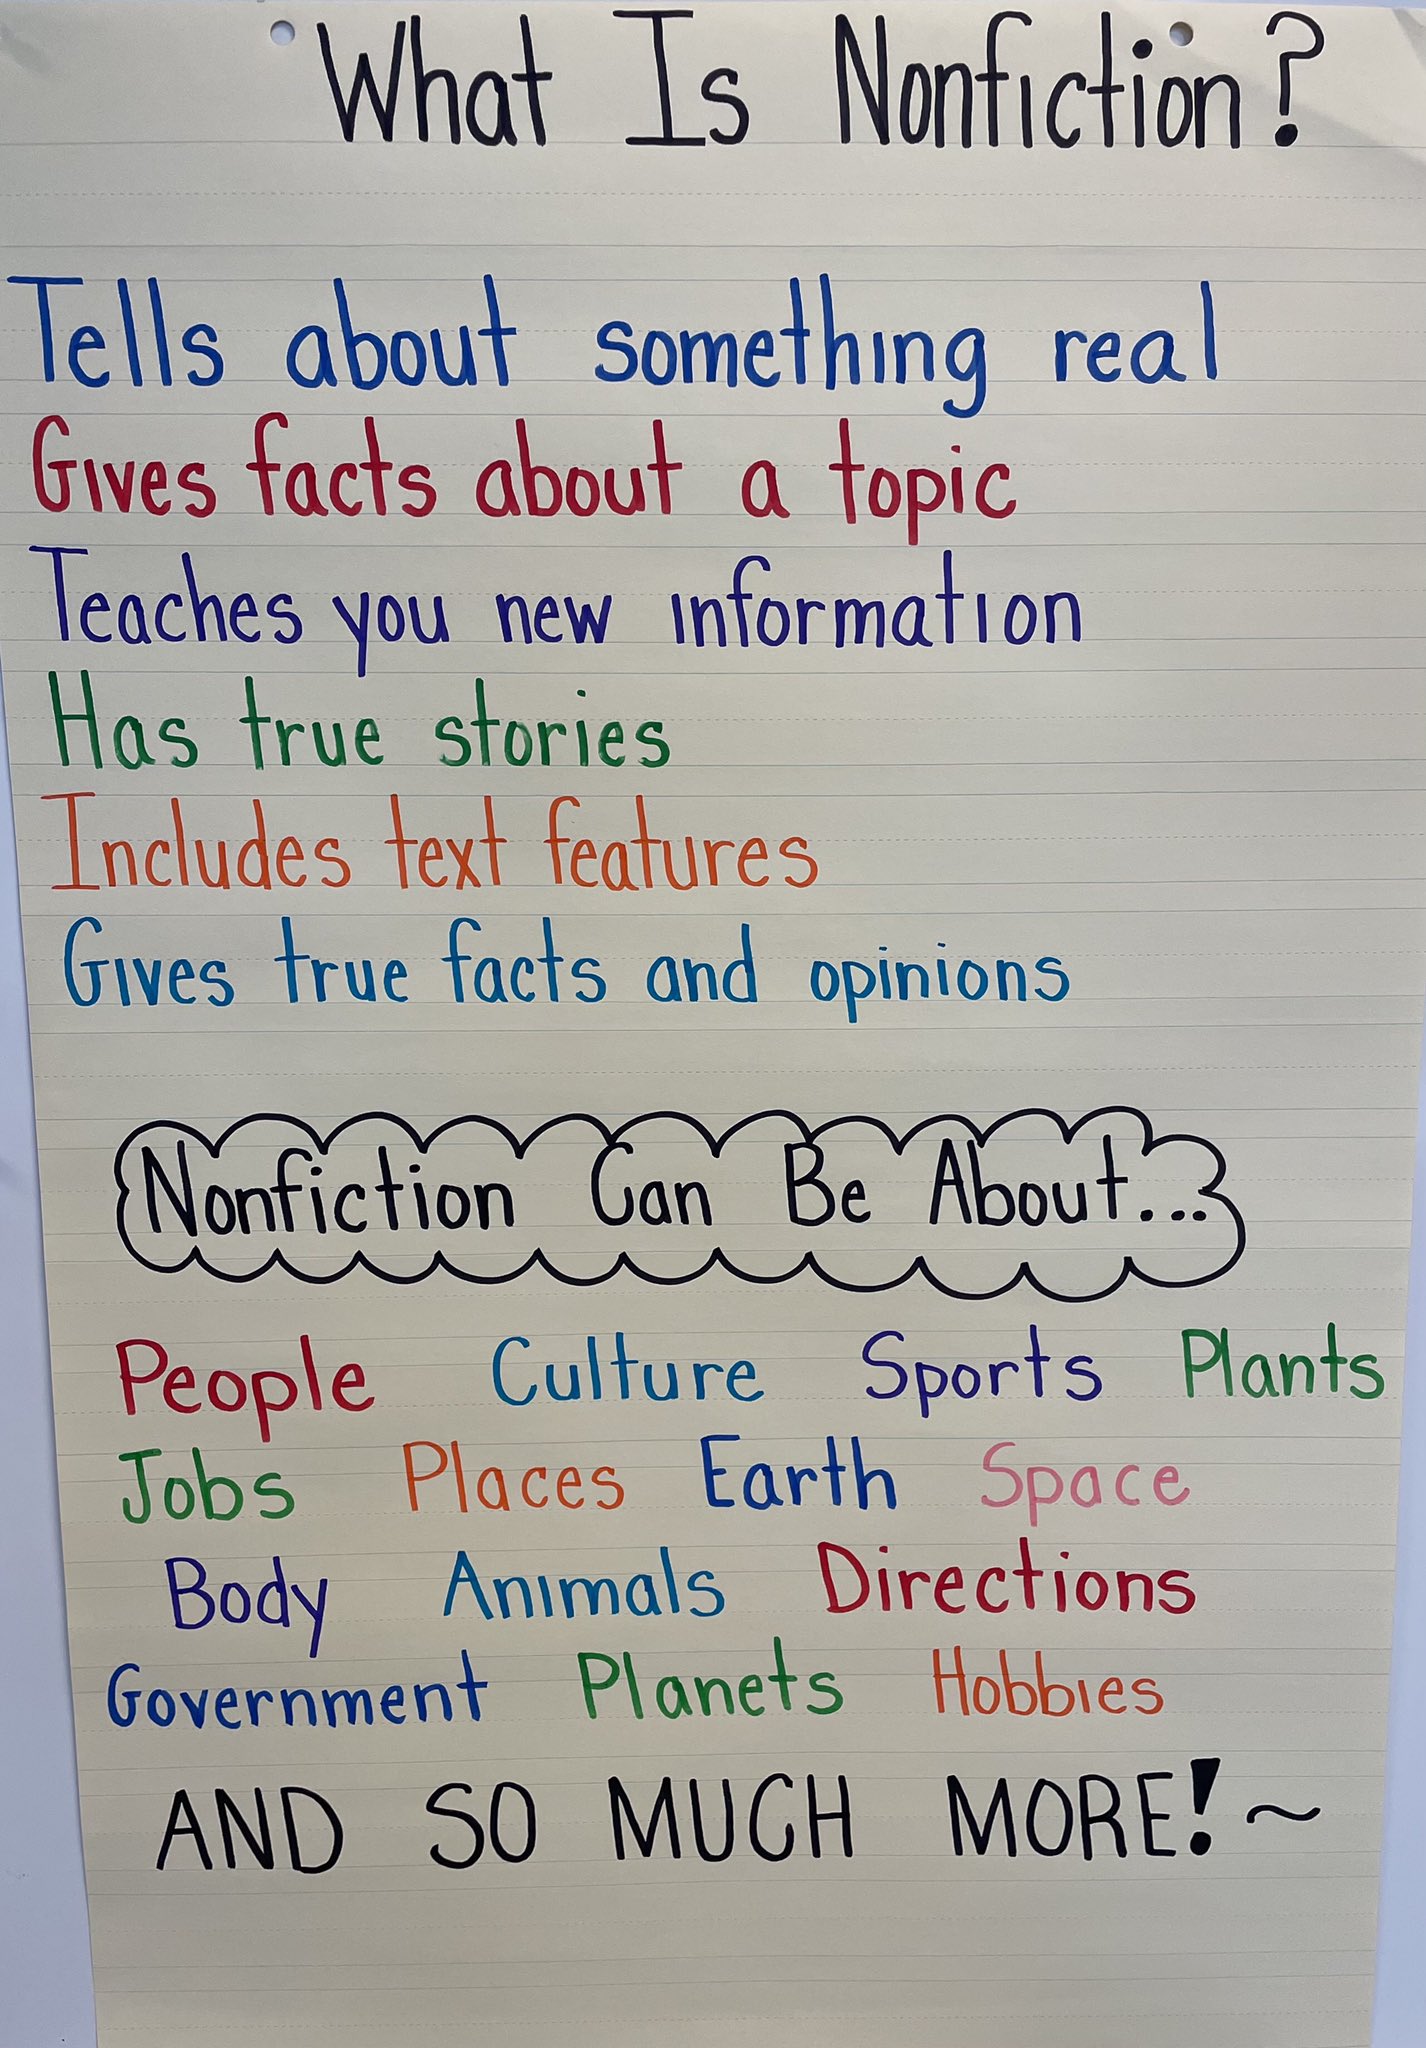 What Is Nonfiction?
Tells about something real
Gives facts about a topic
Teaches you new information
Has true stories
Includes text features
Gives true facts and opinions
Nonfiction Can Be About...
People Culture Sports Plants
Jobs Places Earth Space
Body Animals Directions
Government Planets Hobbies
AND SO MUCH MORE!~